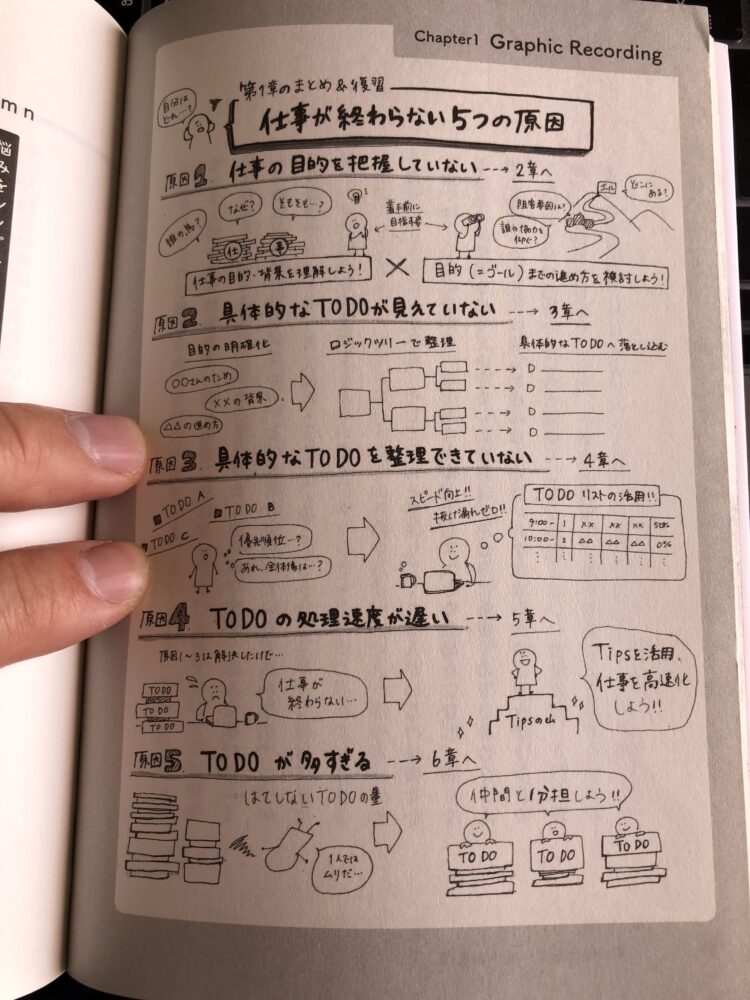 Chapter1 Graphic Recording
第1章のまとめ&復習
自分は
どれ…?
仕事が終わらない5つの原因
原因1. 仕事の目的を把握していない → 2章へ
誰の為?
なぜ?
そもそも…?
仕
事
着手前に
目指す姿
阻害要因は?
誰の協力を
仰ぐ?
ゴール
どこに
ある?
仕事の目的・背景を理解しよう! × 目的(=ゴール)までの進め方を検討しよう!
原因2. 具体的なTODOが見えていない → 3章へ
目的の明確化
ロジックツリーで整理
具体的なTODOへ落とし込む
○○さんのため
××の背景
△△の進め方
原因3. 具体的なTODOを整理できていない → 4章へ
TODO A
TODO B
TODO C
優先順位…?
あれ、全体像は…?
スピード向上!!
抜け漏れゼロ!!
TODOリストの活用!!
9:00- 1 ×× ×× ×× 50%
10:00- 2 △△ △△ △△ 0%
原因4. TODOの処理速度が遅い → 5章へ
原因1~3は解決したけど…
TODO
TODO
TODO
仕事が
終わらない…
Tipsの山
Tipsを活用、
仕事を高速化
しよう!!
原因5. TODOが多すぎる → 6章へ
はてしないTODOの量
1人では
ムリだ…
仲間と分担しよう!!
TODO
TODO
TODO